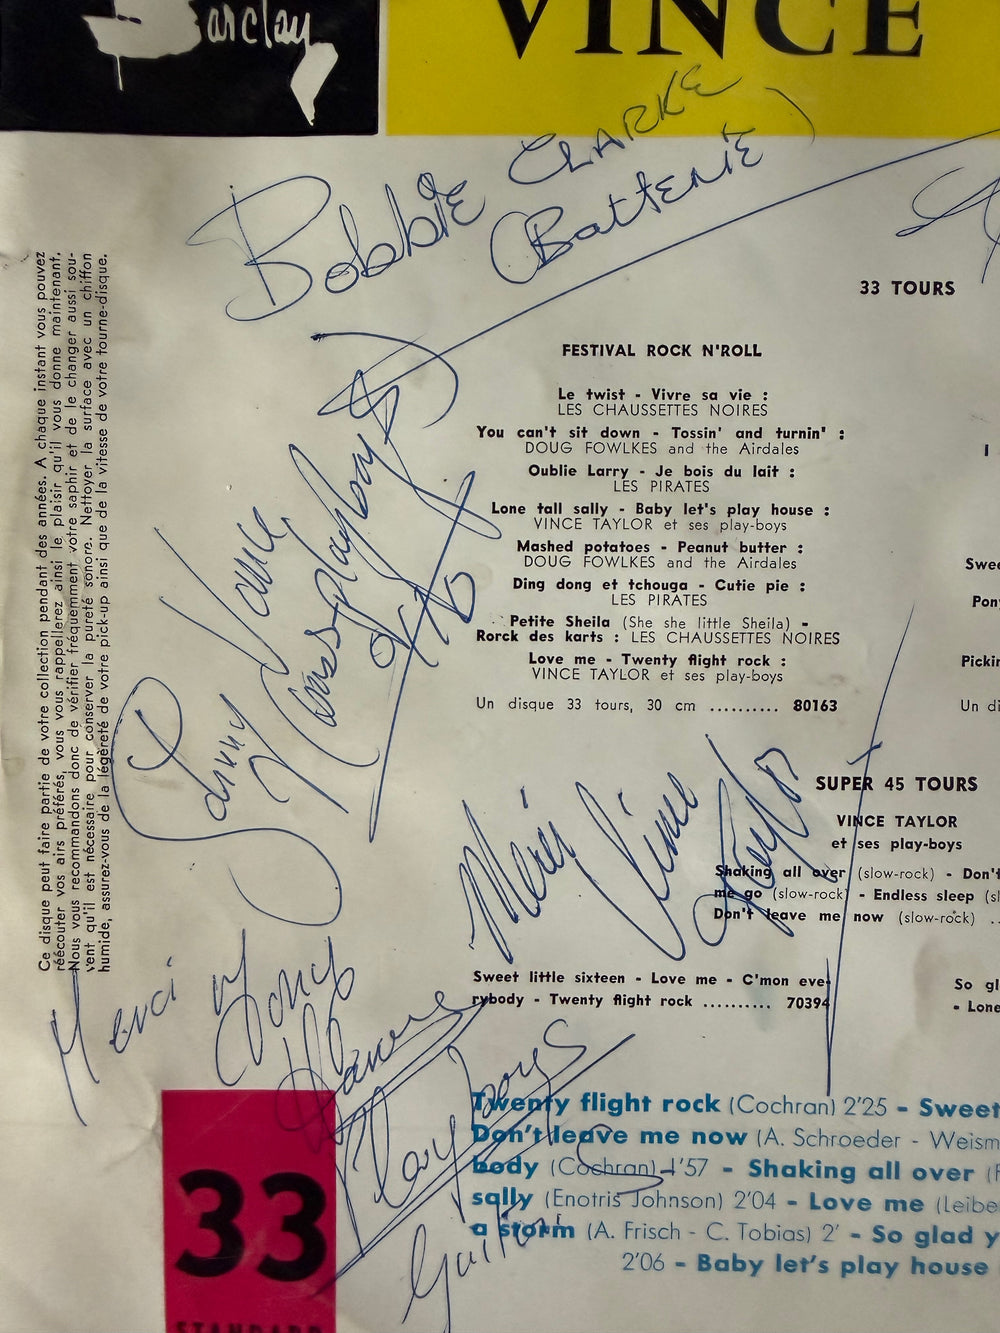 Barclay
VINCE
Bobbie CLARKE
(Batterie)
33 TOURS
FESTIVAL ROCK N'ROLL
Le twist - Vivre sa vie :
LES CHAUSSETTES NOIRES
You can't sit down - Tossin' and turnin' :
DOUG FOWLKES and the Airdales
Oublie Larry - Je bois du lait :
LES PIRATES
Lone tall sally - Baby let's play house :
VINCE TAYLOR et ses play-boys
Mashed potatoes - Peanut butter :
DOUG FOWLKES and the Airdales
Ding dong et tchouga - Cutie pie :
LES PIRATES
Petite Sheila (She she little Sheila) -
Rorck des karts : LES CHAUSSETTES NOIRES
Love me - Twenty flight rock :
VINCE TAYLOR et ses play-boys
Un disque 33 tours, 30 cm .......... 80163
I
Swee
Pon
Pickin
Un di
Ce disque peut faire partie de votre collection pendant des années. A chaque instant vous pouvez
réécouter vos airs préférés, vous vous rappellerez ainsi le plaisir qu'il vous donne maintenant.
Nous vous recommandons donc de vérifier fréquemment votre saphir et de le changer aussi sou-
vent qu'il est nécessaire pour conserver la pureté sonore. Nettoyer la surface avec un chiffon
humide, assurez-vous de la légèreté de votre pick-up ainsi que de la vitesse de votre tourne-disque.
Vince
Taylor
SUPER 45 TOURS
VINCE TAYLOR
et ses play-boys
Shaking all over (slow-rock) - Don't
me go (slow-rock) - Endless sleep (sl
Don't leave me now (slow-rock) ..
Sweet little sixteen - Love me - C'mon eve-
rybody - Twenty flight rock .......... 70394
So gl
- Lone
Merci
Play boys
Guitar
33
STANDARD
Twenty flight rock (Cochran) 2'25 - Sweet
Don't leave me now (A. Schroeder - Weism
body (Cochran) 1'57 - Shaking all over (F
sally (Enotris Johnson) 2'04 - Love me (Leibe
a storm (A. Frisch - C. Tobias) 2' - So glad y
2'06 - Baby let's play house